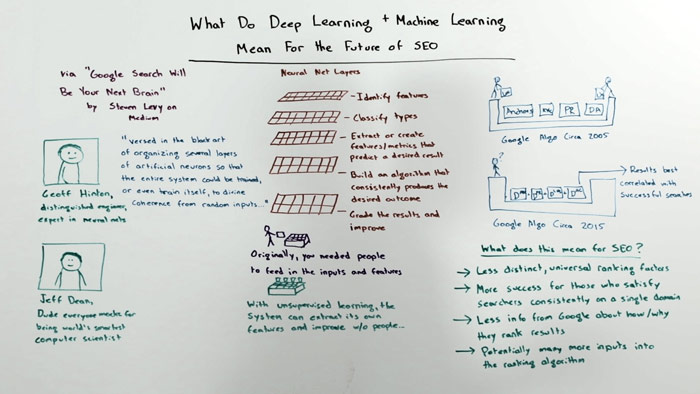 What Do Deep Learning + Machine Learning
Mean For the Future of SEO
via "Google Search Will
Be Your Next Brain"
by Steven Levy on
Medium
Geoff Hinton,
distinguished engineer,
expert in neural nets
"versed in the black art
of organizing several layers
of artificial neurons so that
the entire system could be trained,
or even brain itself, to divine
coherence from random inputs..."
Jeff Dean,
Dude everyone meets for
being world's smartest
computer scientist
Neural Net Layers
Identify features
Classify types
Extract or create
features/metrics that
predict a desired result
Build an algorithm that
consistently produces the
desired outcome
Grade the results and
improve
Originally, you needed people
to feed in the inputs and features
With unsupervised learning, the
System can extract its own
features and improve w/o people...
Anchors
PR
DA
Google Algo Circa 2005
?
Results best
correlated with
successful searches
Google Algo Circa 2015
What does this mean for SEO?
→ Less distinct, universal ranking factors
→ More success for those who satisfy
searchers consistently on a single domain
→ Less info from Google about how/why
they rank results
→ Potentially many more inputs into
the ranking algorithm